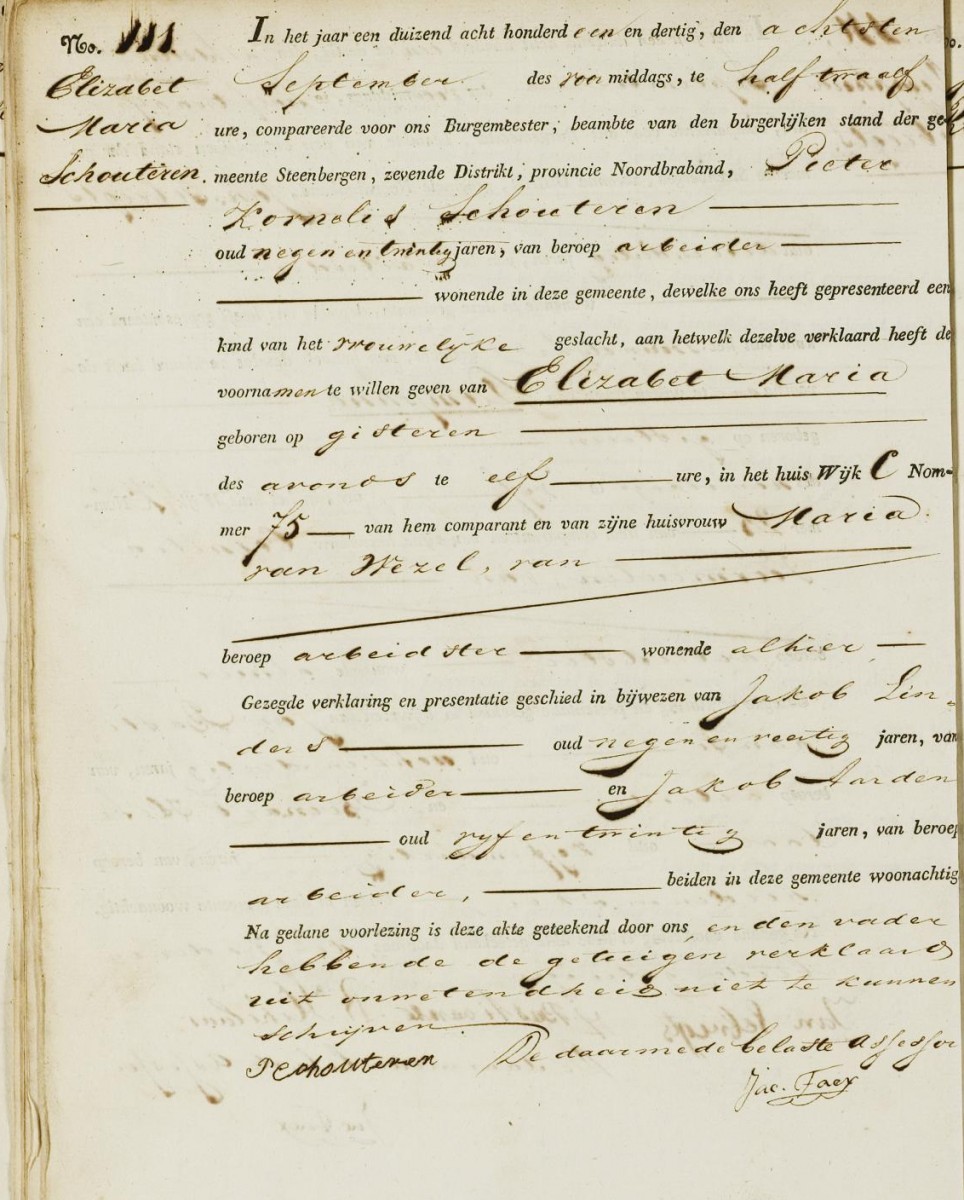 No. 111.
Elizabet
Maria
Schouteren.
In het jaar een duizend acht honderd een en dertig, den achtsten
September des voormiddags, te half twaalf
ure, compareerde voor ons Burgemeester, beambte van den burgerlijken stand der ge-
meente Steenbergen, zevende Distrikt, provincie Noordbraband, Pieter
Kornelis Schouteren
oud negen en twintig jaren, van beroep arbeider
wonende in deze gemeente, dewelke ons heeft gepresenteerd een
kind van het vrouwelyke geslacht, aan hetwelk dezelve verklaard heeft de
voornamen te willen geven van Elizabet Maria
geboren op gisteren
des avonds te elf ure, in het huis Wijk C Nom-
mer 75 van hem comparant en van zijne huisvrouw Maria
van Wezel, van
beroep arbeidster wonende alhier
Gezegde verklaring en presentatie geschied in bijwezen van Jakob Lin-
ders oud negen en veertig jaren, van
beroep arbeider en Jakob Aarden
oud vyf en twintig jaren, van beroep
arbeider, beiden in deze gemeente woonachtig
Na gedane voorlezing is deze akte geteekend door ons en den vader
hebbende de getuigen verklaard
uit onwetendheid niet te kunnen
schrijven.
P Schouteren De daarmede belaste Assessor
Jac. Faex